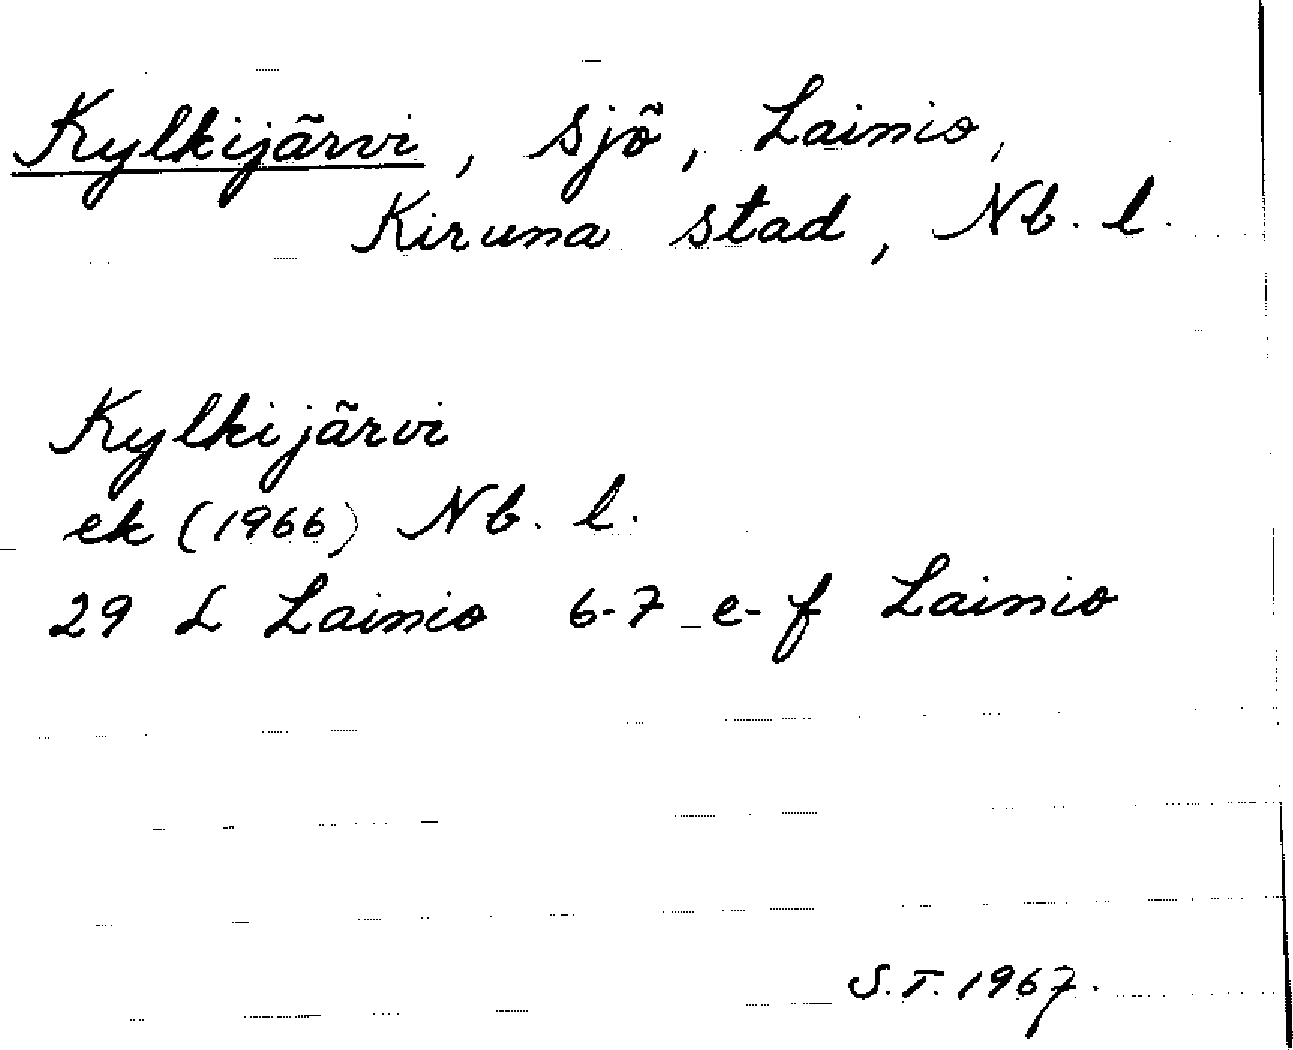 Kylkijärvi, sjö, Lainio,
Kiruna stad, Nb. l.
Kylkijärvi
ek (1966) Nb. l.
29 L Lainio 6-7 e-f Lainio
S.T. 1967.